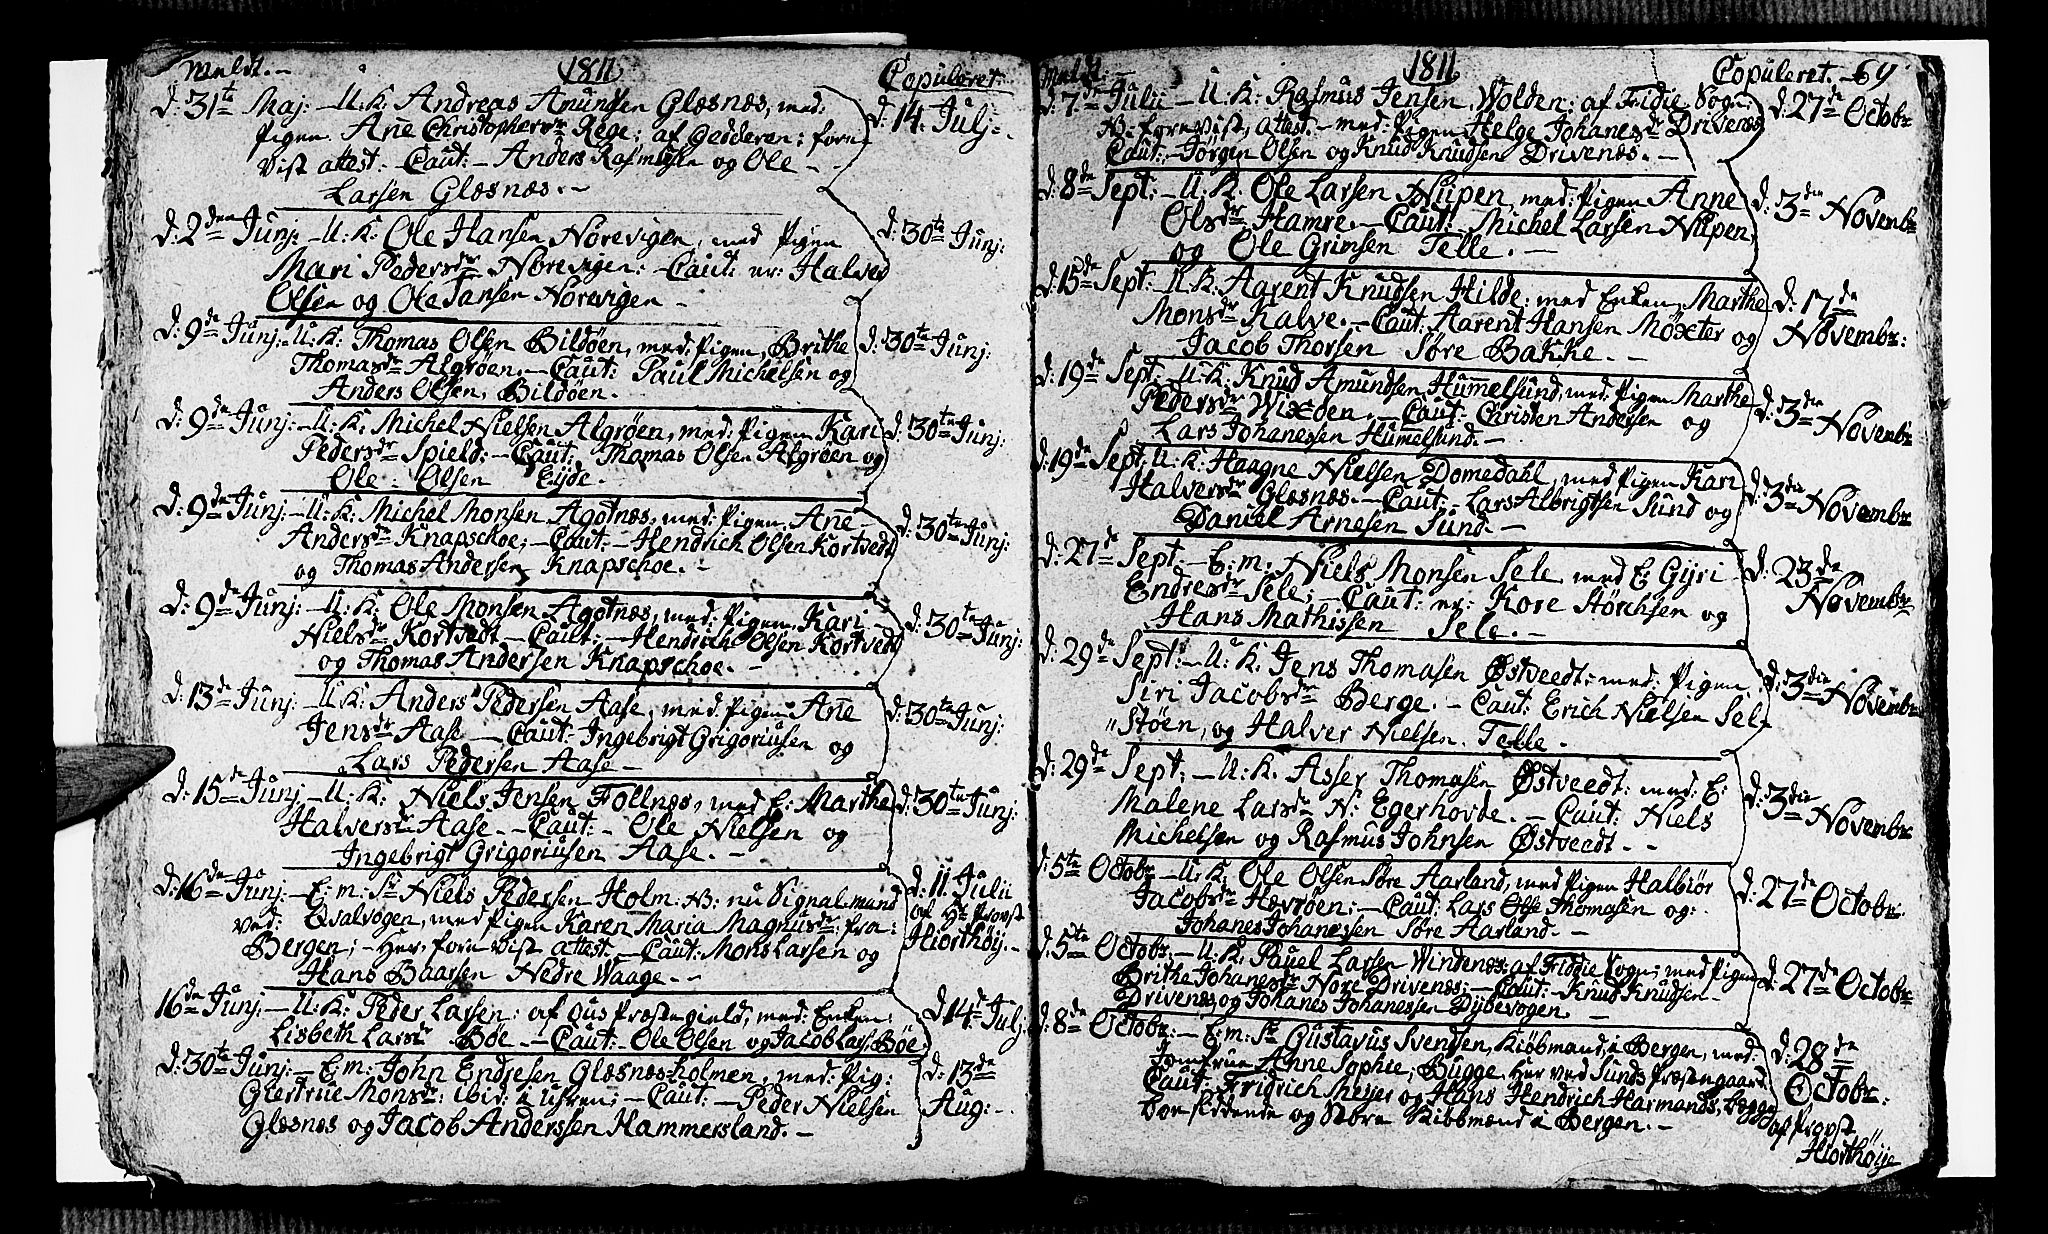 Meldt. 1811 Copuleret.
d: 31te Maj: - U: K: Andreas Amundsen Glæsnæs, med: d: 14. Julj:
Pigen Ane Christophersdr Rege: af Jedderen: forn
vist attest. - Caut: - Anders Rasmusen og Ole
Larsen Glæsnæs. -
d: 2den Junj: - U: K: Ole Hansen Norevigen, med Pigen d: 30te Junj:
Mari Pedersdr Norevigen: - Caut: er: Halver
Olsen og Ole Jansen Norevigen -
d: 9de Junj: - U: K: Thomas Olsen Bildöen, med: Pigen, Brithe d: 30te Junj:
Thomasdr Algröen. - Caut: Paul Michelsen og
Anders Olsen, Bildöen.
d: 9de Junj: - U: K: Michel Nielsen Algröen, med: Pigen Kari d: 30te Junj:
Pedersdr Spield: - Caut: Thomas Olsen Algröen og
Ole Olsen Eyde. -
d: 9de Junj: - U: K: Michel Monsen Agotnæs, med: Pigen, Ane d: 30te Junj:
Andersdr Knapschoe; - Caut: - Hendrich Olsen Kortvedt
og Thomas Andersen Knapschoe. -
d: 9de Junj: - U: K: Ole Monsen Agotnæs, med: Pigen, Kari - d: 30te Junj:
Nielsdr Kortvedt - Caut: - Hendrich Olsen Kortvedt
og Thomas Andersen Knapschoe. -
d: 13de Junj: - U: K: Anders Pedersen Aase, med Pigen Ane d: 30te Junj:
Jensdr Aase - Caut: Ingebrigt Grigoriusen og
Lars Pedersen Aase -
d: 15de Junj - U: K: Niels Jensen Follnæs, med E: Marthe d: 30te Junj:
Halversdr Aase. - Caut: - Ole Nielsen og
Ingebrigt Grigoriusen Aase. -
d: 16de Junj: - E: m: Sr Niels Pedersen Holm: N: nu Signalmand d: 11. Julii
ved: Qvalvogen, med Pigen Karen Maria Magnusdr: fra: af Hr Provst
Bergen; - Her, forn vist attest. - Caut: Mons Larsen og Hiorthöij. -
Hans Baarsen Nedre Waage. -
16de Junj: - U: K: Peder Larsen: af Ous Præstegield, med: Enken: d: 14de Julj:
Lisbeth Larsdr Böe. - Caut: - Ole Olsen og Jacob Lars: Böe,
d: 30te Junj: - E: m: John Endresen Glæsnæsholmen, med: Pig: d: 13de
Giertrue Monsdr: ibid: - Caut: - Peder Nielsen Aug: -
Glæsnæs og Jacob Anderssen Hammersland. -
Meldt: - 1811 Copuleret. - 69
d: 7de Julii - U: K: Rasmus Jensen Wolden: af Fidie Sogn: d: 27de Octobr
N: forevist, attest. - med: Pigen Helge Johanesdr Drivenæs
Caut: - Jörgen Olsen og Knud Knudsen Drivenæs. -
d: 8de Sept: - U: K. Ole Larsen Niipen, med: Pigen Anne d: 3die Novembr
Olsdr Hamre. - Caut: - Michel Larsen Niipen,
og Ole Grimsen Telle. -
d: 15de Sept: U: K: Aarent Knudsen Hilde: med Enken, Marthe d: 17de
Monsdr Kalve. - Caut: Aarent Hansen Möxter og Novembr:
Jacob Thorsen Söre Bakke. -
d: 19de Sept: U: K: Knud Amundsen Hummelsund, med: Pigen Marthe d: 3die
Pedersdr Wixöen. - Caut: Christen Andersen og Novembr
Lars Johanessen Humelsund. -
d: 19de Sept: U: K: Haagne Nielsen Domedahl, med Pigen Kari d: 3die Novembr
Halversdr Glæsnæs. - Caut: Lars Albrigtsen Sund og
Daniel Arnesen Sund. -
d: 27de Sept: - E: m: Niels Monsen Sele med E: Gijri - d: 23de
Endresdr Sele; - Caut: er: Kore Störchsen og Novembr
Hans Mathissen Sele. -
d: 29de Sept: - U: K: Jens Thomasen Østveedt: med: Pigen d: 3die Novembr
Siri Jacobsdr Berge. - Caut: Erich Nielsen Sel-
"Stöen, og Halver Nielsen Telle.
d: 29de Sept: - U: K. Asser Thomasen Østveedt: med: E: d: 3die
Malene Larsdr N: Egerhovde. - Caut: Niels Novembr
Michelsen og Rasmus Johnsen Østveedt. -
d: 5te Octobr - U: K: Ole Olsen Söre Aarland, med Pigen Halbiör d: 27de
Jacobsdr Hævröen; - Caut: Lars Olse Thomasen og: Octobr:
Johanes Johanessen Söre Aarland. -
d: 5te Octobr: - U: K: Pauel Larsen Windenæs: af Fiddie Sogn; med Pigen d: 27de Octobr
Brithe Johanesdr Nore Drivenæs: - Caut: - Knud Knudsen -
Drivenæs og Johanes Johanessen Dijbevogen. -
d: 8de Octobr: - E: m: Sr Gustavus Svendsen, Kiöbmand, i Bergen, med: d: 28de
Jomfrue Anne Sophie, Bugge, Her ved Sunds Præstegaard Octobr:
Caut: Fridrich Meyer og Hans Hendrich Harmands, begge af Provst
Boesiddende og Store Kiöbmænd i Bergen. - Hiorthöije